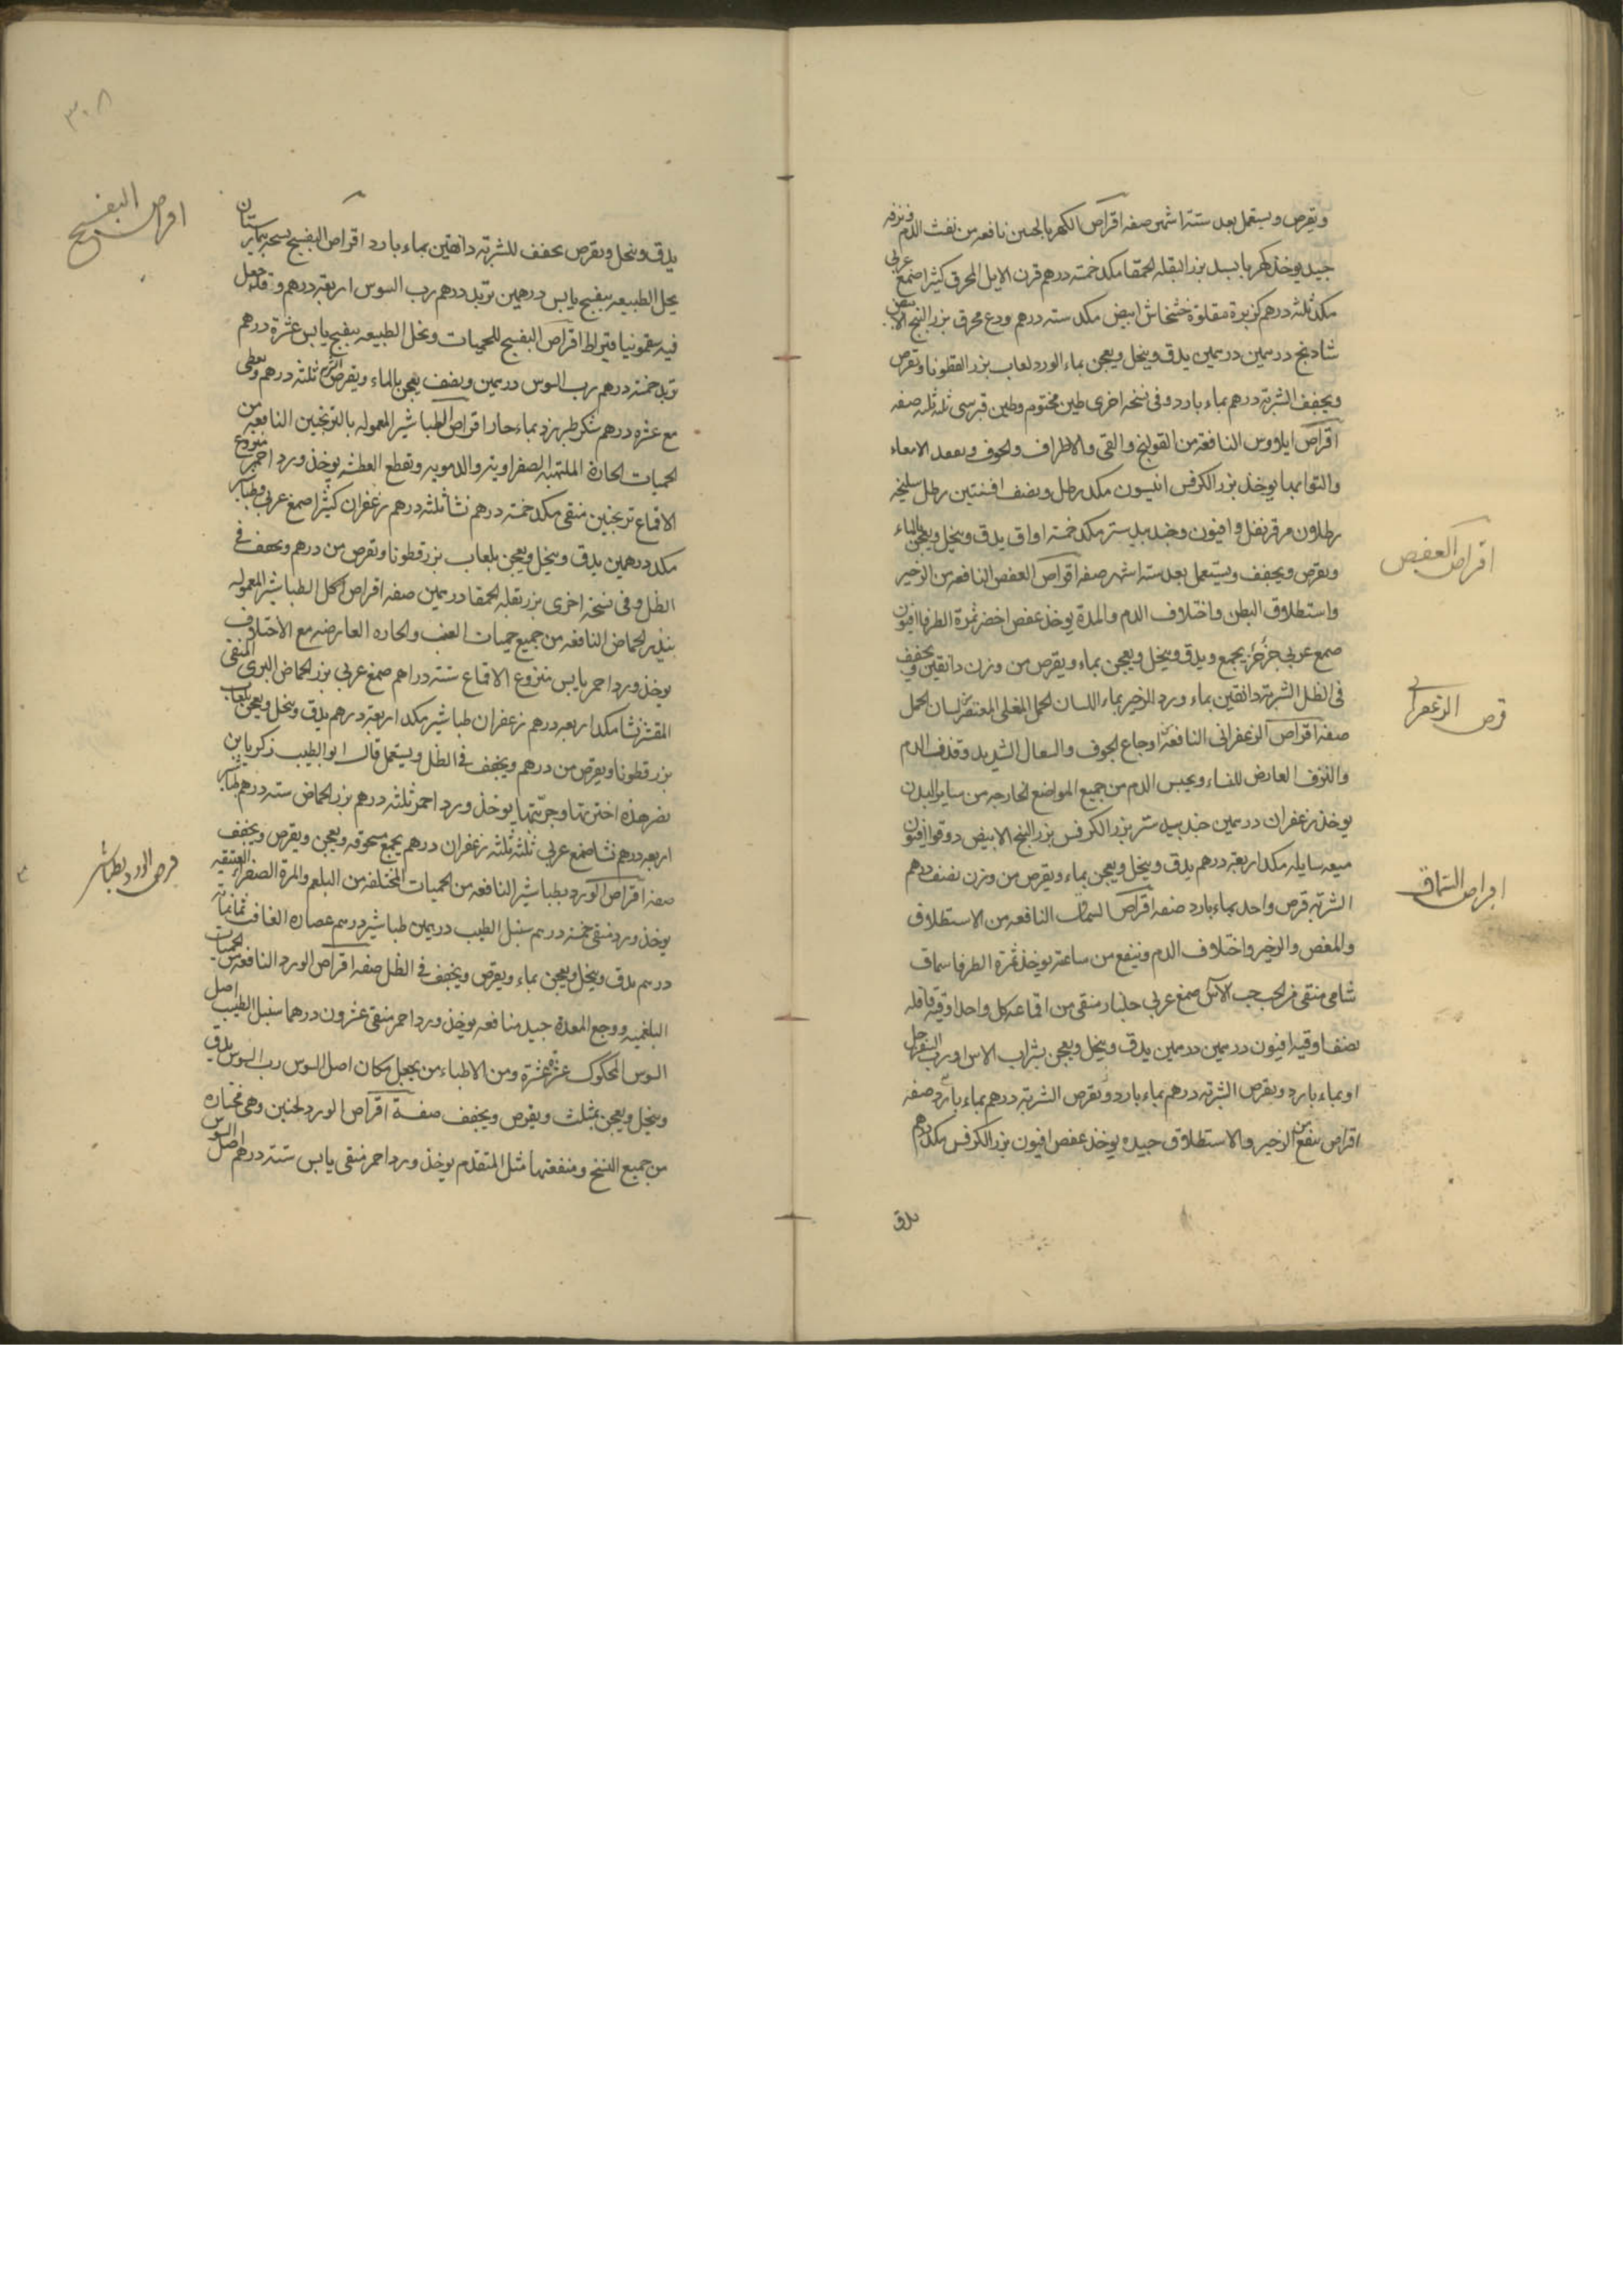 ويقرص ويستعمل بعد ستة اشهر صفه اقراص الكهربا لحنين نافعه من نفث الدم ونزفه
جيد يوخذ كهربا بسد بزر البقله الحمقا مكد خمسه درهم قرن الايل المحرق كثيرا صمغ عربى
مكد ثلثه درهم كزبرة مقلوة خشخاش ابيض مكد سته درهم ودع محرق بزر البنج الابيض
شادنج درهمين درهمين يدق وينخل ويعجن بماء الورد لعاب بزر القطونا ويقرص
ويجفف الشربة درهم بماء بارد وفى نسخه اخرى طين مختوم وطين قبرسى ثلثه ثلثه صفه
اقراص ايلاوس النافعة من القولنج والقى والاطراف والجوف الامعاء
والتوايها يوخذ بزر الكرفس انيسون مكد رطل ونصف افسنتين رطل سليخه
رطلان مر قرنفل وافيون وجند بيدستر مكد خمسة اواق يدق وينخل ويعجن بالماء
ويقرص ويجفف ويستعمل بعد سته اشهر صفه اقراص العفص النافعه من الزحير
واستطلاق البطن واختلاف الدم والمدة يوخذ عفص اخضر ثمرة الطرفا افيون
صمغ عربى جزءجزء يجمع ويدق وينخل ويعجن بماء ويقرص من وزن دانقين ويجفف
فى الظل الشربة دانقين بماء ورد الزحير بماء اللسان الحمل المغلى المعتصر لسان الحمل
صفه اقراص الزعفرانى النافعة اوجاع الجوف والسعال الشديد وقذف الدم
والنزف العارض للنساء ويحبس الدم من جميع المواضع الخارجه من ساير البدن
يوخذ زعفران درهمين جند بيد ستر بزر الكرفس بزر البنج الابيض دوقوا افيون
ميعه سايله مكد اربعة درهم يدق وينخل ويعجن بماء ويقرص من وزن نصف درهم
الشربة قرص واحد بماء بارد صفه اقراص السماق النافعه من الاستطلاق
والمغص والزحير واختلاف الدم وينفع من ساعته يوخذ ثمرة الطرفا سماق
شامى منقى من الحب حب الآس صمغ عربى جلنار منقى من اقماعه كل واحد اوقية قاقله
نصف اوقيه افيون درهمين درهمين يدق وينخل ويعجن بشراب الاس او رب السفرجل
او بماء بارد ويقرص الشربة درهم بماء بارد ويقرص الشربة درهم بماء بارد صفه
اقراص ينفع من الزحير والاستطلاق جيده يوخذ عفص افيون بزر الكرفس مكد درهم
يدق
اقراص العفص
قرص الزعفرانى
اقراص السماق
٣٠٨
يدق وينخل ويقرص يجفف للشربة دانقين بماء بارد اقراص البنفسج نسخه بيمارستان
يحل الطبيعه بنفسج يابس درهمين تربد درهم رب السوس اربعة درهم وقد جعل
فيه سقمونيا قيراط اقراص البنفسج للحميات ويحل الطبيعه بنفسج يابس عشرة درهم
تربد خمسه درهم رب السوس درهمين ونصف يعجن بالماء ويقرص ثلثه درهم ويعطى
مع عشره درهم سكر طبرزد بماء حار اقراص الطباشير المعموله بالترنجبين النافعه من
الحميات الحارة الملتهبه الصفراوية والدمويه وتقطع العطش يوخذ ورد احمر منزوع
الاقماع ترنجبين منقى مكد خمسة درهم نشا ثلثه درهم زعفران كثيرا صمغ عربى وطباشير
مكد درهمين يدق وينخل ويعجن بلعاب بزر قطونا ويقرص من درهم ويجفف فى
الظل وفى نسخة اخرى بزر بقله الحمقا درهمين صفه اقراص اكل الطباشير المعموله
ببذر الحماض النافعه من جميع حميات العفن والحاره العارضه مع الاختلاف
يوخذ ورد احمر يابس منزوع الاقماع ستة دراهم صمغ عربى بزر الحماض البرى المنقى
المقشر نشا مكد اربعه درهم زعفران طباشير مكد اربعة درهم يدق وينخل ويعجن بلعاب
بزر قطونا ويقرص من درهم ويجفف فى الظل ويستعمل قال ابو الطيب زكريا بن
نصر هذه اخترتها وجربتها يوخذ ورد احمر ثلثه درهم بزر الحماض سته درهم طباشير
اربعه درهم نشا صمغ عربى ثلثه ثلثه زعفران درهم يجمع مسحوقه ويعجن ويقرص ويجفف
صفه اقراص الورد بطباشير النافعه من الحميات المختلفه من البلغم والمرة الصفراء العتيقه
يوخذ ورد منقى خمسة درهم سنبل الطيب درهمين طباشير درهم عصاره الغافت ثمانية
درهم يدق وينخل ويعجن بماء ويقرص ويجفف فى الظل صفه اقراص الورد النافعه من الحميات
البلغميه ووجع المعدة جيد منافعه يوخذ ورد احمر منقى عشرون درهما سنبل الطيب اصل
السوس المحكوك عشرة عشرة ومن الاطباء من يجعل مكان اصل السوس رب السوس يدق
وينخل ويعجن بمثلث ويقرص ويجفف صفة اقراص الورد لحنين وهى مختاره
من جميع النسخ ومنفعتها مثل المتقدم يوخذ ورد احمر منقى يابس ستة درهم اصل السوس
اقراص البنفسج
قرص الورد بطباشير